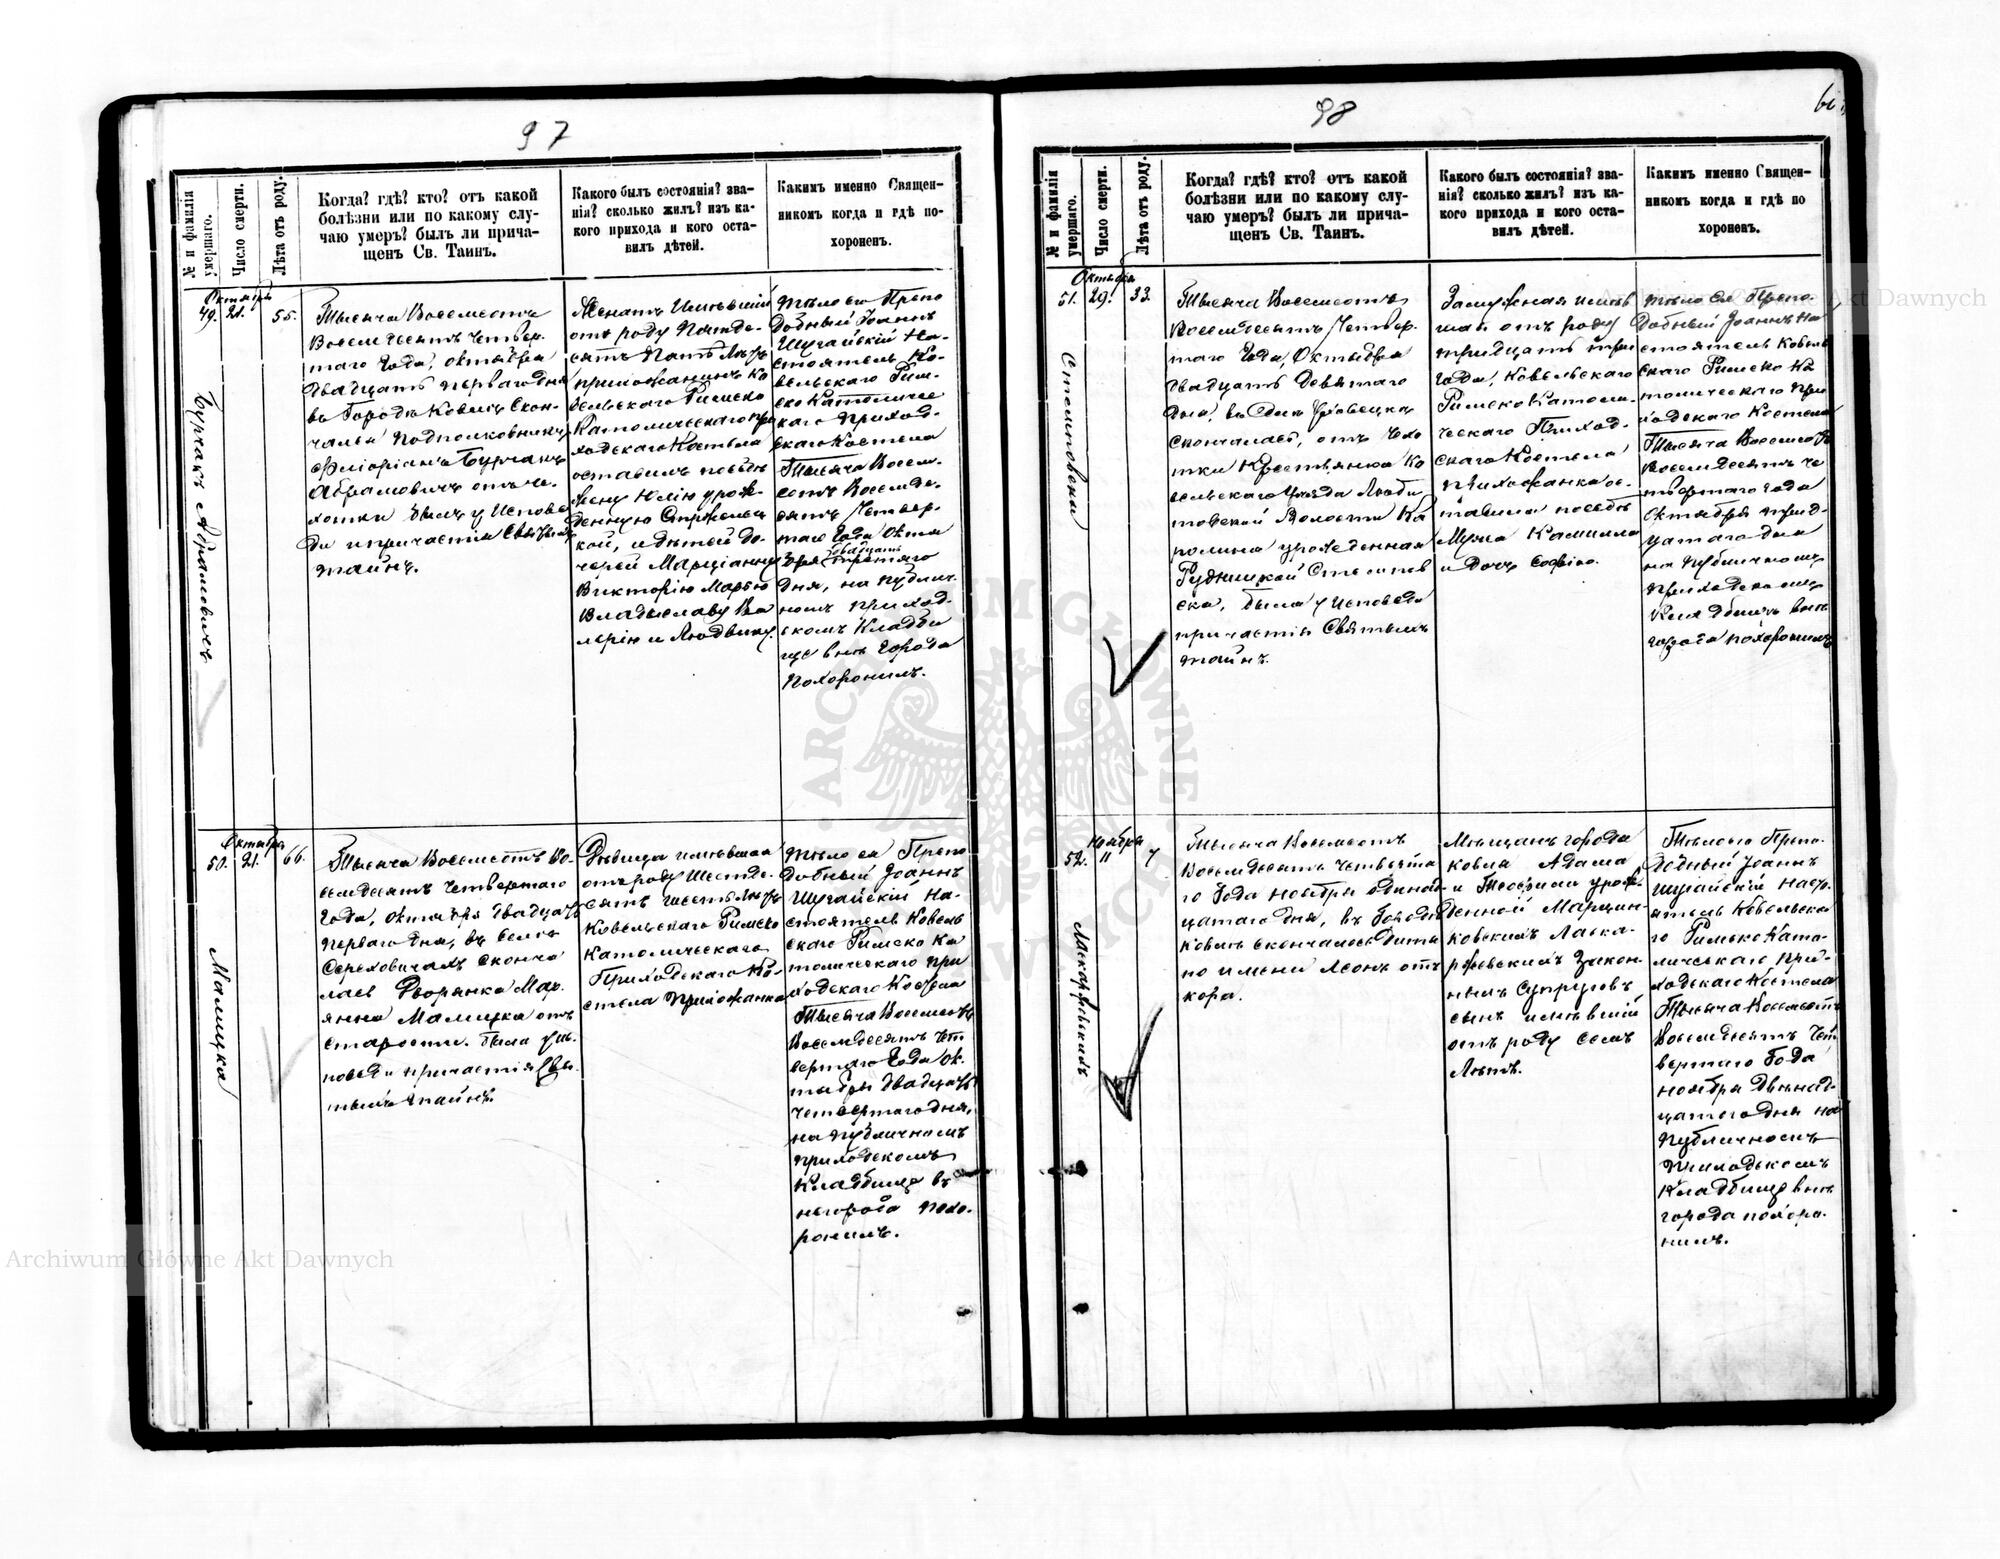 97
№ и фамилія умершаго.
Число смерти.
Лѣта отъ роду.
Когда? гдѣ? кто? отъ какой
болѣзни или по какому слу-
чаю умеръ? былъ ли прича-
щенъ Св. Таинъ.
Какого былъ состоянія? зва-
нія? сколько жилъ? изъ ка-
кого прихода и кого оста-
вилъ дѣтей.
Какимъ именно Священ-
никомъ когда и гдѣ по-
хороненъ.
Октября
49. 21. 55.
Бурчакъ Абрамовичъ
Тысяча Восемсотъ
Восемдесятъ Четвер-
таго Года, Октября
двадцать перваго дня
въ Городѣ Ковлѣ Скон-
чался подполковникъ
Флоріанъ Бурчакъ
Абрамовичъ отъ че-
хотки былъ у Испове
ди и причастія Святыхъ
тайнъ.
Женатъ Имѣвшій
отъ роду Пятьде-
сятъ пять Лѣтъ
прихожанинъ Ко
вельскаго Римско
Католическаго при
ходскаго Костела
оставилъ по себѣ
жену Юлію урож-
денную
кой, и дѣтей до-
черей Марціанну
Викторію Марію
Владыславу Ва
лерію и Людвику.
тѣло его Препо
добный Іоаннъ
Шугайскій На-
стоятель Ко-
вельскаго Рим-
ско Католичес
каго Приход-
скаго Костела
Тысяча Восем-
сотъ Восемде-
сятъ Четвер-
таго Года Октя
бря двадцать третяго
дня, на публич-
номъ приход-
скомъ Кладби
ще внѣ Города
Похоронилъ.
Октября
50. 21. 66.
Малицка
Тысяча Восемсотъ Во-
семдесятъ Четвертаго
Года, Октября двадцать
перваго дня, въ Селѣ
Сереховичахъ сконча
лась Дворянка Мар-
янна Малицка отъ
старости. была у ис-
поведи и причастія Свя-
тыхъ тайнъ.
Дѣвица имѣвшая
отъ роду Шестьде-
сятъ шесть Лѣтъ
Ковельскаго Римско
Католическаго
Приходскаго Ко-
стела прихожанка
тѣло ея Препо
добный Іоаннъ
Шугайскій На-
стоятель Ковель
скаго Римско Ка
толическаго при
ходскаго Костела
Тысяча Восемсотъ
Восемдесятъ Чет
вертаго Года Ок-
тября двадцать
четвертаго дня,
на публичномъ
приходскомъ
Кладбище в
нѣ города похо-
ронилъ.
98
№ и фамилія умершаго.
Число смерти.
Лѣта отъ роду.
Когда? гдѣ? кто? отъ какой
болѣзни или по какому слу-
чаю умеръ? былъ ли прича-
щенъ Св. Таинъ.
Какого былъ состоянія? зва-
нія? сколько жилъ? изъ ка-
кого прихода и кого оста-
вилъ дѣтей.
Какимъ именно Священ-
никомъ когда и гдѣ по
хороненъ.
Октября
51. 29. 33.
Стемповска
Тысяча Восемсотъ
Восемдесятъ Четвер-
таго Года, Октября
двадцать девятаго
дня, въ
скончалась, отъ Чехо
тки Крестьянка Ко
вельскаго Уѣзда Люби
товской Волости Ка
ролина урожденная
Рудницкой Стемпов
ска, была у исповеди
причастія Святыхъ
тайнъ.
Замужная имѣв
шая отъ роду
тридцать три
Года, Ковельскаго
Римско Католи-
ческаго Приход-
скаго Костела
прихожанка ос-
тавила по себѣ
Мужа Камилла
и Дочь Софію.
тѣло ея Препо-
добный Іоаннъ На
стоятель Ковель
скаго Римско Ка
толическаго при
ходскаго Костела
Тысяча Восемсотъ
Восемдесятъ Че
твертаго Года
Октября трид-
цатаго дня
на публичномъ
приходскомъ
Кладбищѣ внѣ
города похоронилъ
Ноября
52. 11 7
Ласкаржевскихъ
Тысяча Восемсотъ
Восемдесятъ Четверта
го Года Ноября одинад-
цатаго дня, въ Городѣ
Ковлѣ скончалось дитя
по имени Леонъ отъ
кора.
Мѣщанъ города
Ковля Адама
и Теофили урож-
денной Марцин-
ковскихъ Ласка-
ржевскихъ Закон-
ныхъ супруговъ
сынъ имѣвшій
отъ роду семъ
Лѣтъ.
Тѣло его Препо-
добный Іоаннъ
Шугайскій наст-
оятель Ковельска
го Римско Като-
лическаго при-
ходскаго Костела
Тысяча Восемсотъ
Восемдесятъ Чет
вертаго Года
Ноября двѣнад-
цатаго дня на
публичномъ
приходскомъ
Кладбище внѣ
города похоро-
нилъ.
Archiwum Główne Akt Dawnych
Archiwum Główne Akt Dawnych
ARCHIWUM GŁÓWNE AKT DAWNYCH